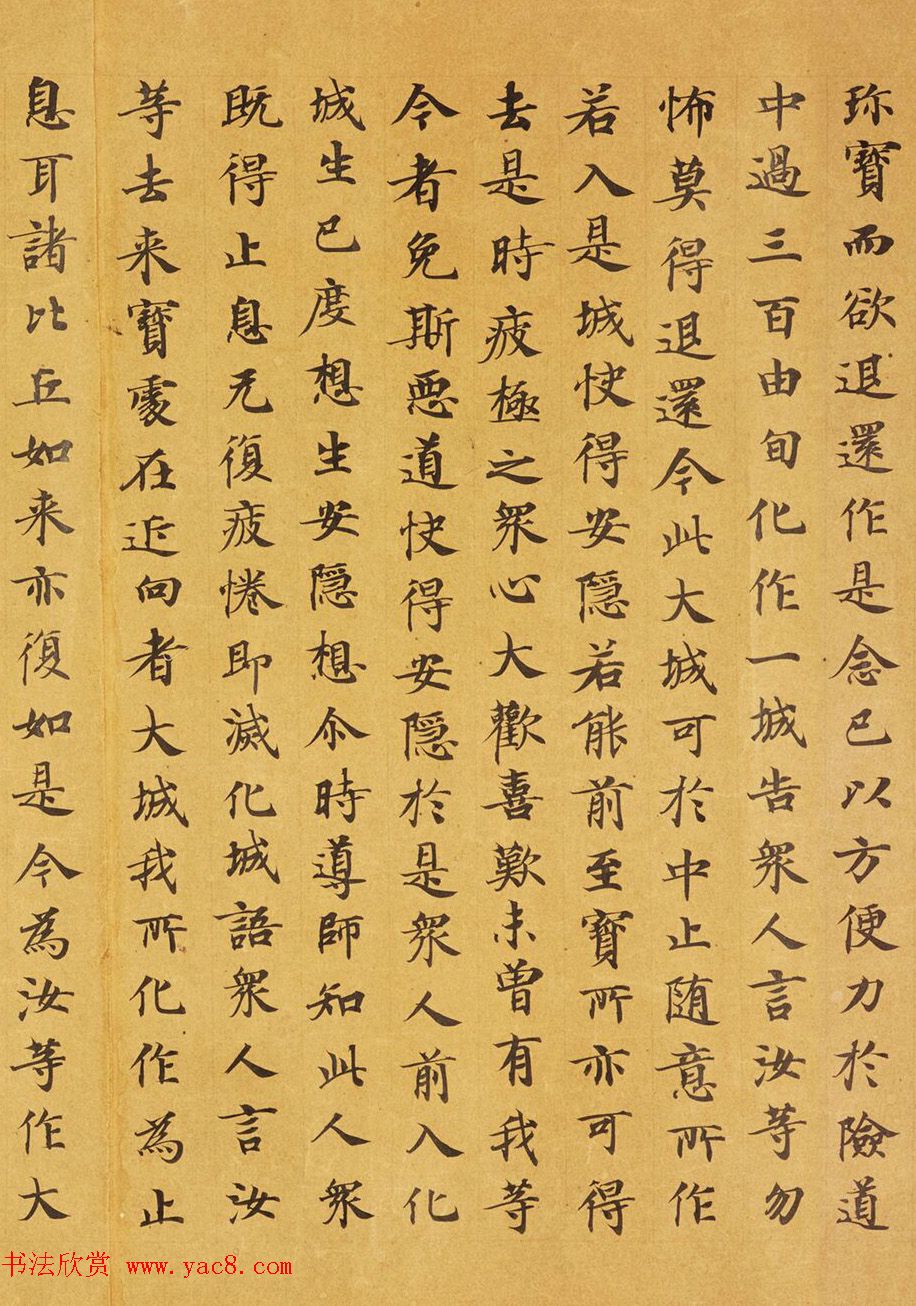 珎寶而欲退還作是念已以方便力於險道
中過三百由旬化作一城告衆人言汝等勿
怖莫得退還今此大城可於中止随意所作
若入是城快得安隱若能前至寶所亦可得
去是時疲極之衆心大歡喜歎未曾有我等
今者免斯惡道快得安隱於是衆人前入化
城生已度想生安隱想尒時導師知此人衆
既得止息无復疲惓即滅化城語衆人言汝
等去来寶處在近向者大城我所化作為止
息耳諸比丘如来亦復如是今為汝等作大
书法欣赏 www.yac8.com